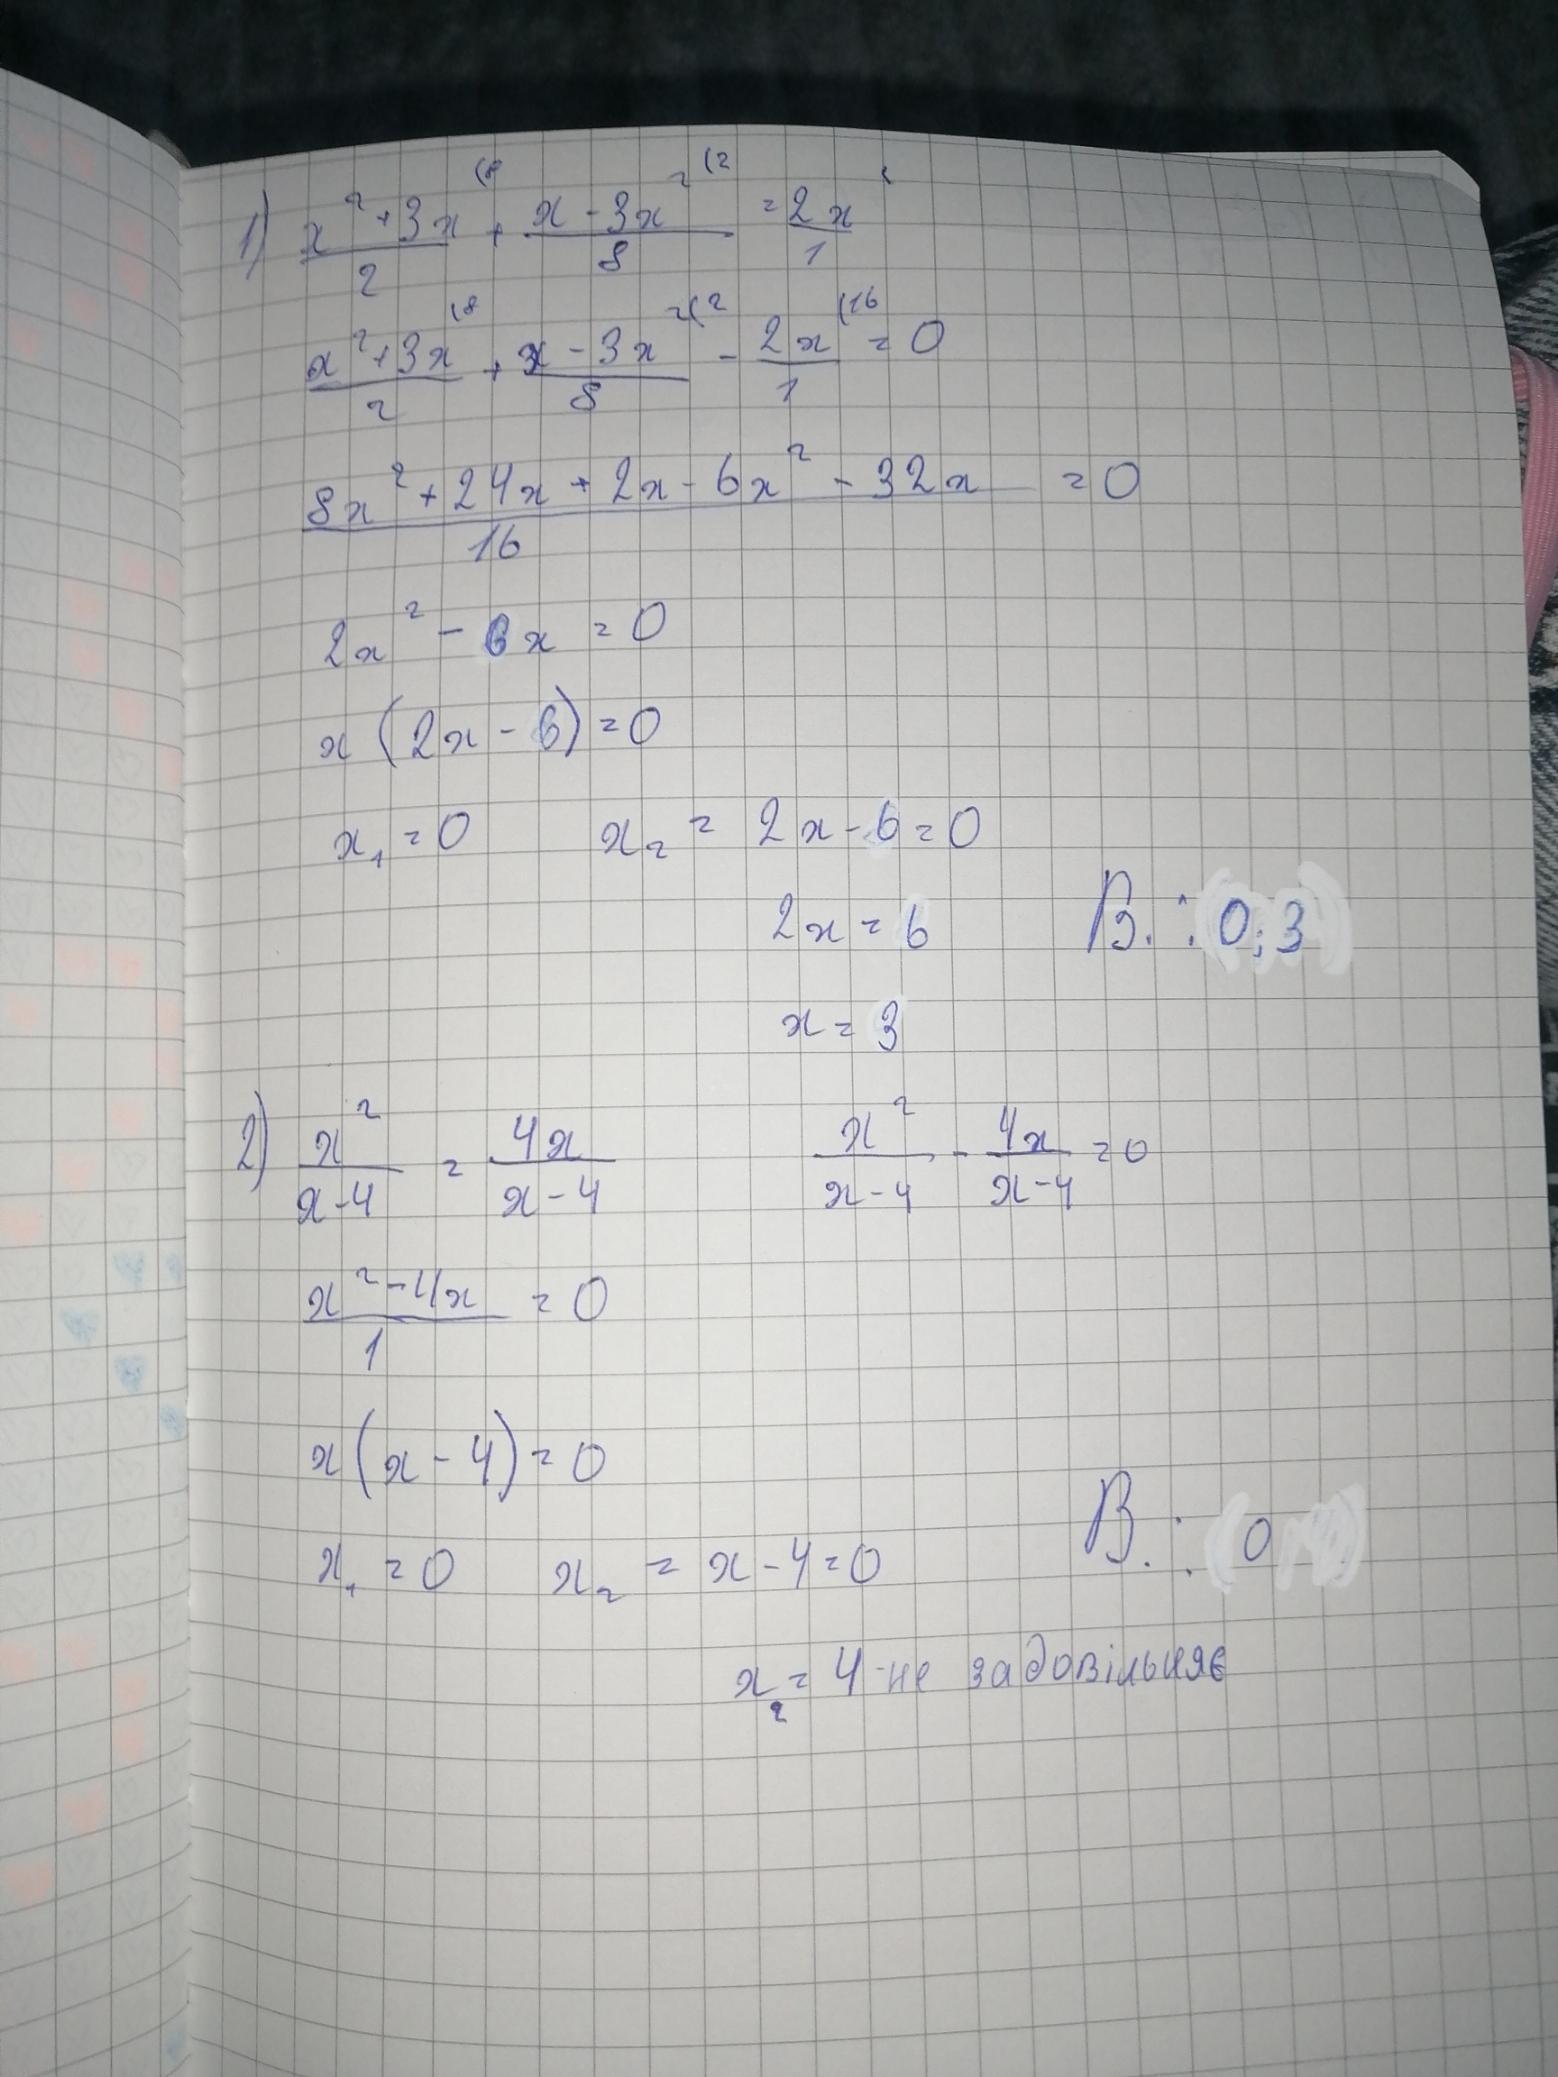 1) (x²+3x)/2 (8 + (x-3x²)/8 (2 = 2x/1 (
(x²+3x)/2 (8 + (x-3x²)/8 (2 - 2x/1 (16 = 0
(8x²+24x+2x-6x²-32x)/16 = 0
2x² - 6x = 0
x(2x-6)=0
x₁=0 x₂ = 2x-6=0
2x=6 В.: 0;3
x=3
2) x²/(x-4) = 4x/(x-4) x²/(x-4) - 4x/(x-4) = 0
(x²-4x)/1 = 0
x(x-4)=0
x₁=0 x₂ = x-4=0 В.: 0
x₂=4-не задовільняє